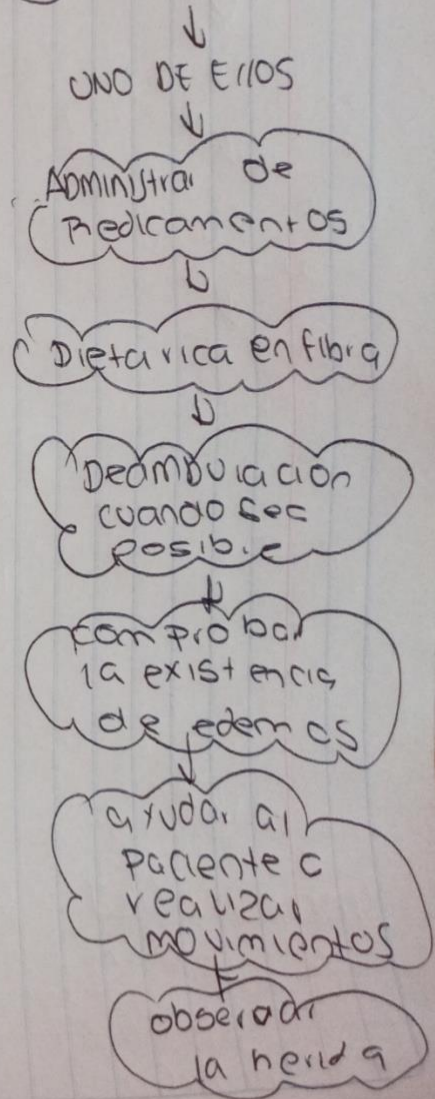 UNO DE EllOS
Administrar de
Medicamentos
Dieta rica en fibra
Deambulación
cuando sea
posible
comprobar
la existencia
de edemas
ayudar al
paciente a
realizar
movimientos
observar
la herida